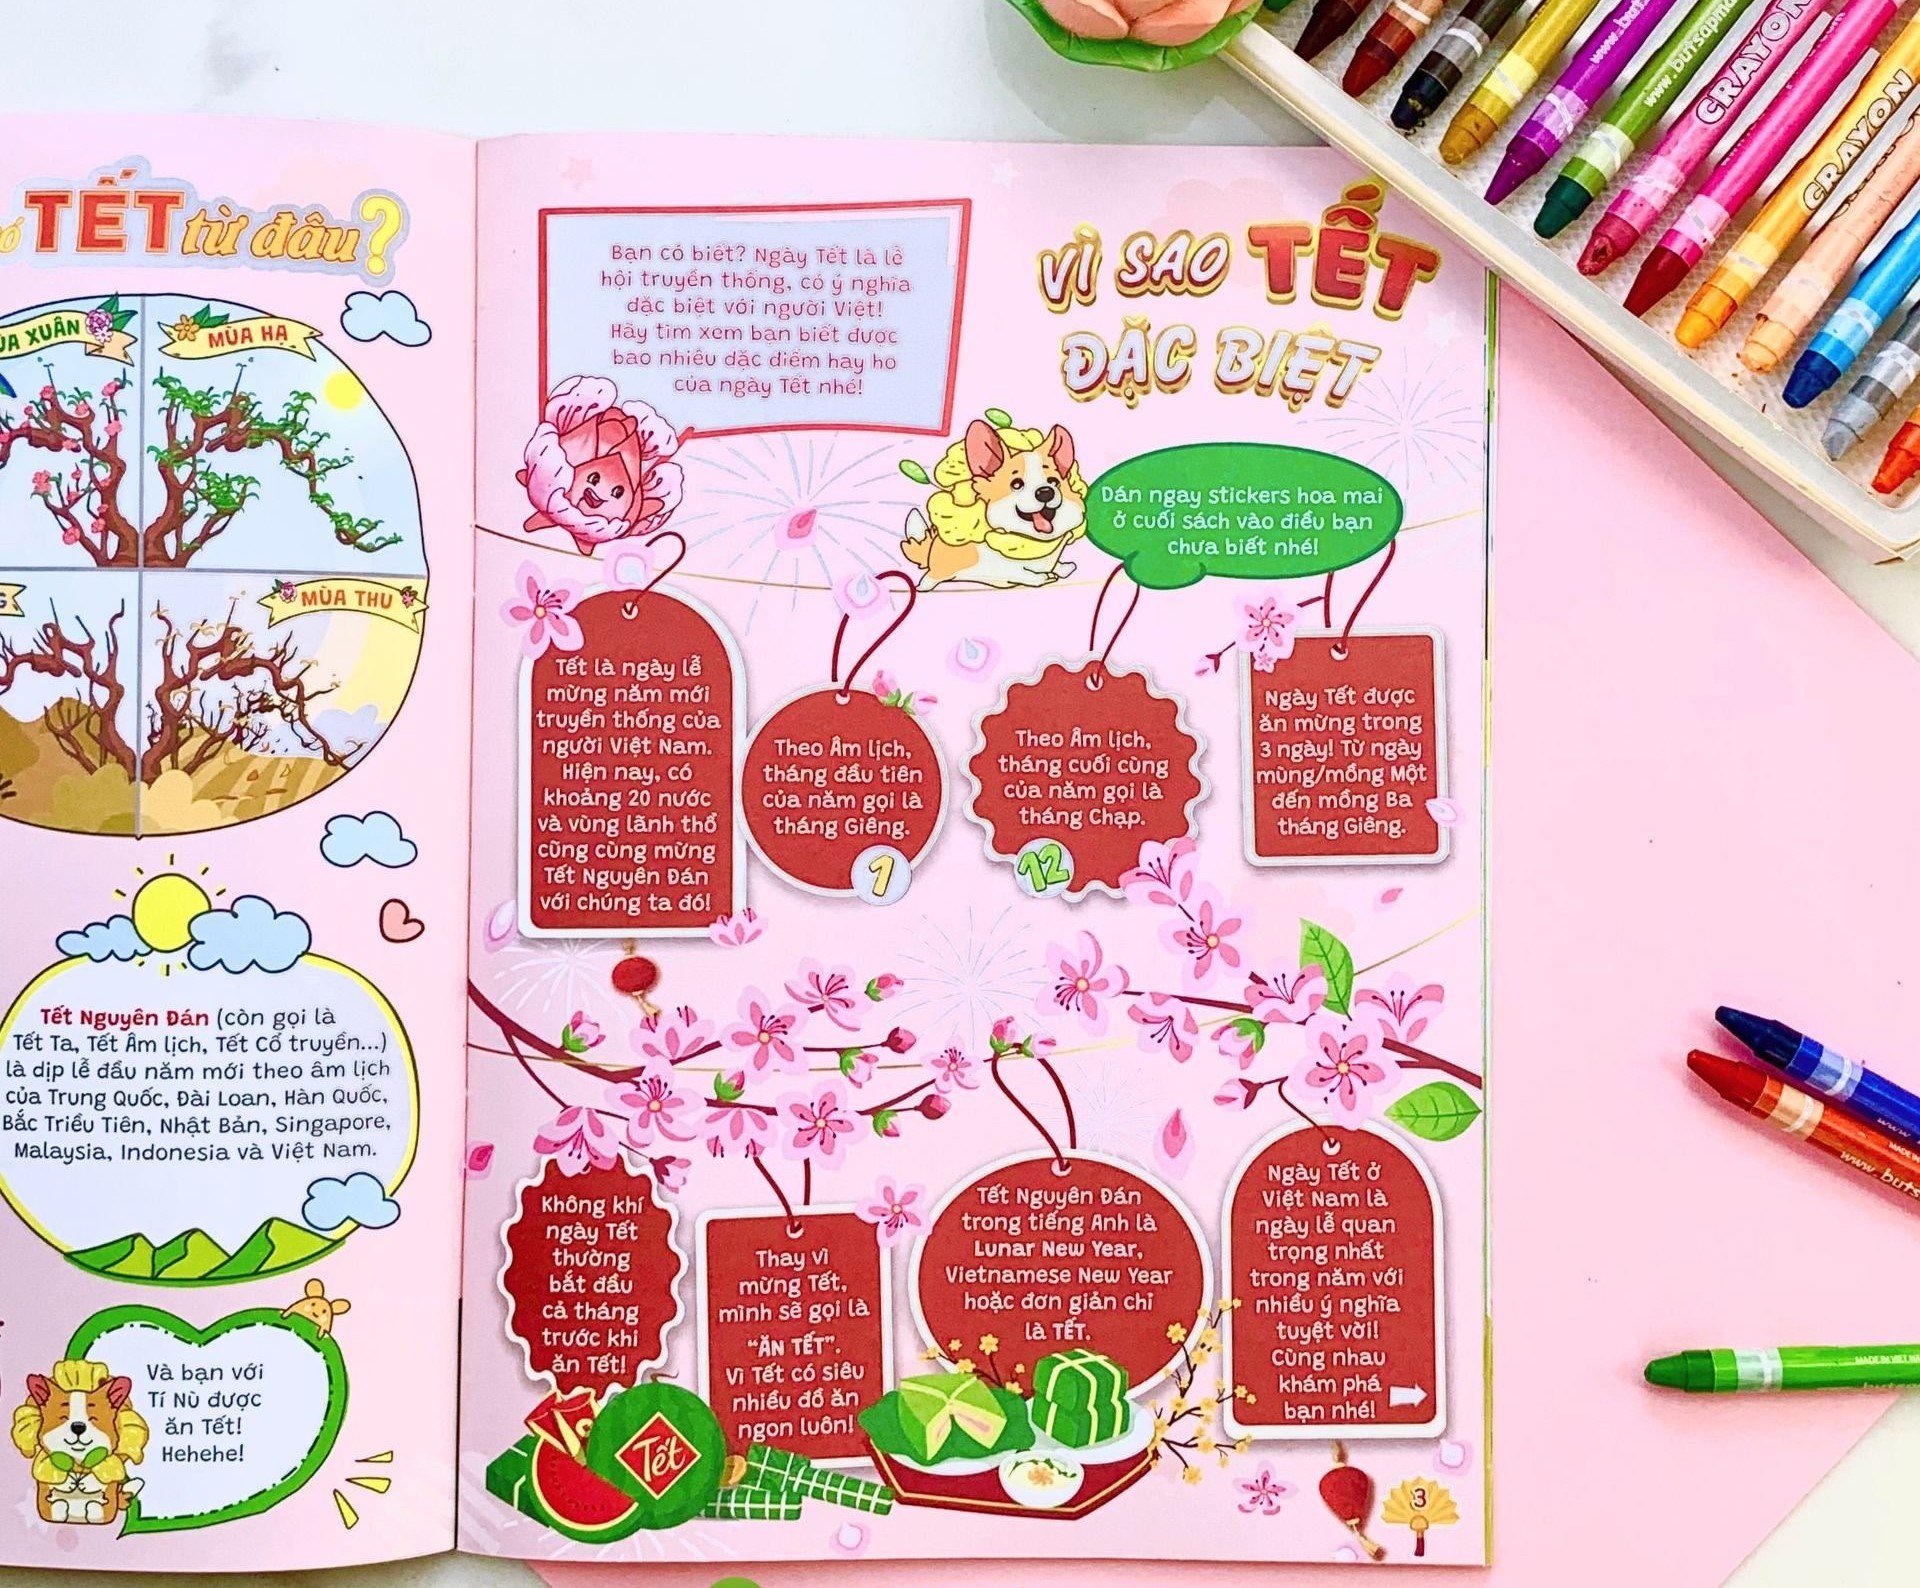 TẾT từ đâu?
XUÂN
MÙA HẠ
MÙA THU
Tết Nguyên Đán (còn gọi là
Tết Ta, Tết Âm lịch, Tết Cổ truyền...)
là dịp lễ đầu năm mới theo âm lịch
của Trung Quốc, Đài Loan, Hàn Quốc,
Bắc Triều Tiên, Nhật Bản, Singapore,
Malaysia, Indonesia và Việt Nam.
Và bạn với
Tí Nù được
ăn Tết!
Hehehe!
Bạn có biết? Ngày Tết là lễ
hội truyền thống, có ý nghĩa
đặc biệt với người Việt!
Hãy tìm xem bạn biết được
bao nhiêu đặc điểm hay ho
của ngày Tết nhé!
VÌ SAO TẾT
ĐẶC BIỆT
Dán ngay stickers hoa mai
ở cuối sách vào điều bạn
chưa biết nhé!
Tết là ngày lễ
mừng năm mới
truyền thống của
người Việt Nam.
Hiện nay, có
khoảng 20 nước
và vùng lãnh thổ
cũng cùng mừng
Tết Nguyên Đán
với chúng ta đó!
Theo Âm lịch,
tháng đầu tiên
của năm gọi là
tháng Giêng.
1
Theo Âm lịch,
tháng cuối cùng
của năm gọi là
tháng Chạp.
12
Ngày Tết được
ăn mừng trong
3 ngày! Từ ngày
mùng/mồng Một
đến mồng Ba
tháng Giêng.
Không khí
ngày Tết
thường
bắt đầu
cả tháng
trước khi
ăn Tết!
Thay vì
mừng Tết,
mình sẽ gọi là
"ĂN TẾT".
Vì Tết có siêu
nhiều đồ ăn
ngon luôn!
Tết Nguyên Đán
trong tiếng Anh là
Lunar New Year,
Vietnamese New Year
hoặc đơn giản chỉ
là TẾT.
Ngày Tết ở
Việt Nam là
ngày lễ quan
trọng nhất
trong năm với
nhiều ý nghĩa
tuyệt vời!
Cùng nhau
khám phá
bạn nhé!
Tết
3
CRAYON
CRAYON